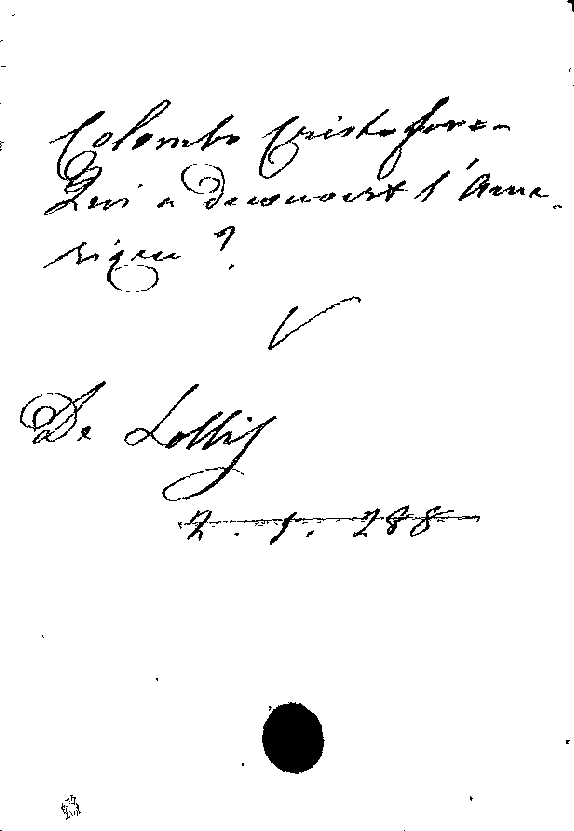 Colombo Cristoforo -
Qui a découvert l'Amé-
rique ?
V
De Lollis
2. 5. 288